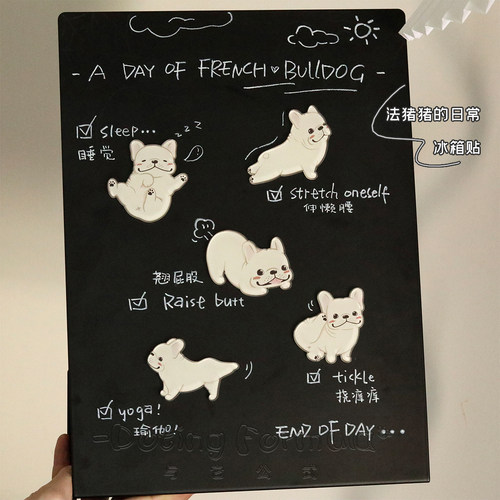 - A DAY OF FRENCH♥BULLDOG -
法猪猪的日常
冰箱贴
sleep...
zzz
睡觉
stretch oneself
伸懒腰
翘屁股
Raise butt
tickle
挠痒痒
yoga!
瑜伽!
END OF DAY...